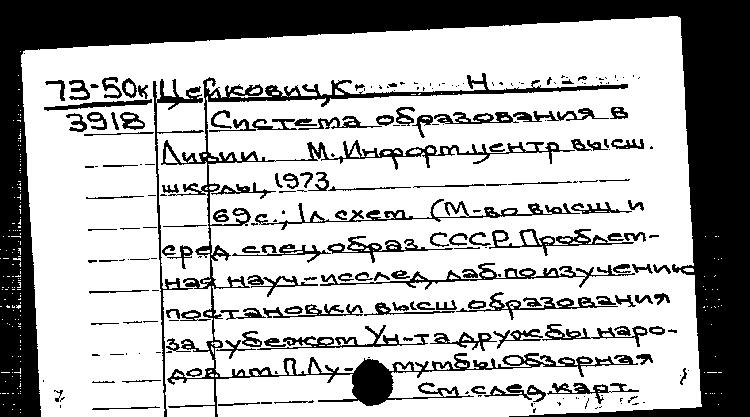 73-50к Цейкович, К Н
3918 Система образования в
Ливии. М., Информ.центр высш.
школы, 1973.
69 с.; 1 л. схем. (М-во высш. и
сред. спец. образ. СССР. Проблем-
ная науч.-исслед. лаб. по изучению
постановки высш. образования
за рубежом Ун-та дружбы наро-
дов им. П. Лу- мумбы. Обзорная
См. след. карт.